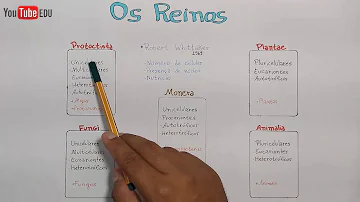 YouTube EDU
Os Reinos
Protoctista
Unicelulares
Heterotróficos
Autotróficos
Robert Whittaker
1969
- Número de células
- Presença de núcleo
- Nutrição
Plantae
Pluricelulares
Eucariontes
Autotróficos
Monera
Unicelulares
Procariontes
Autotróficos
Heterotróficos
Fungi
Unicelulares
Multicelulares
Eucariontes
Heterotróficos
- Fungos
Animalia
Pluricelulares
Eucariontes
Heterotróficos